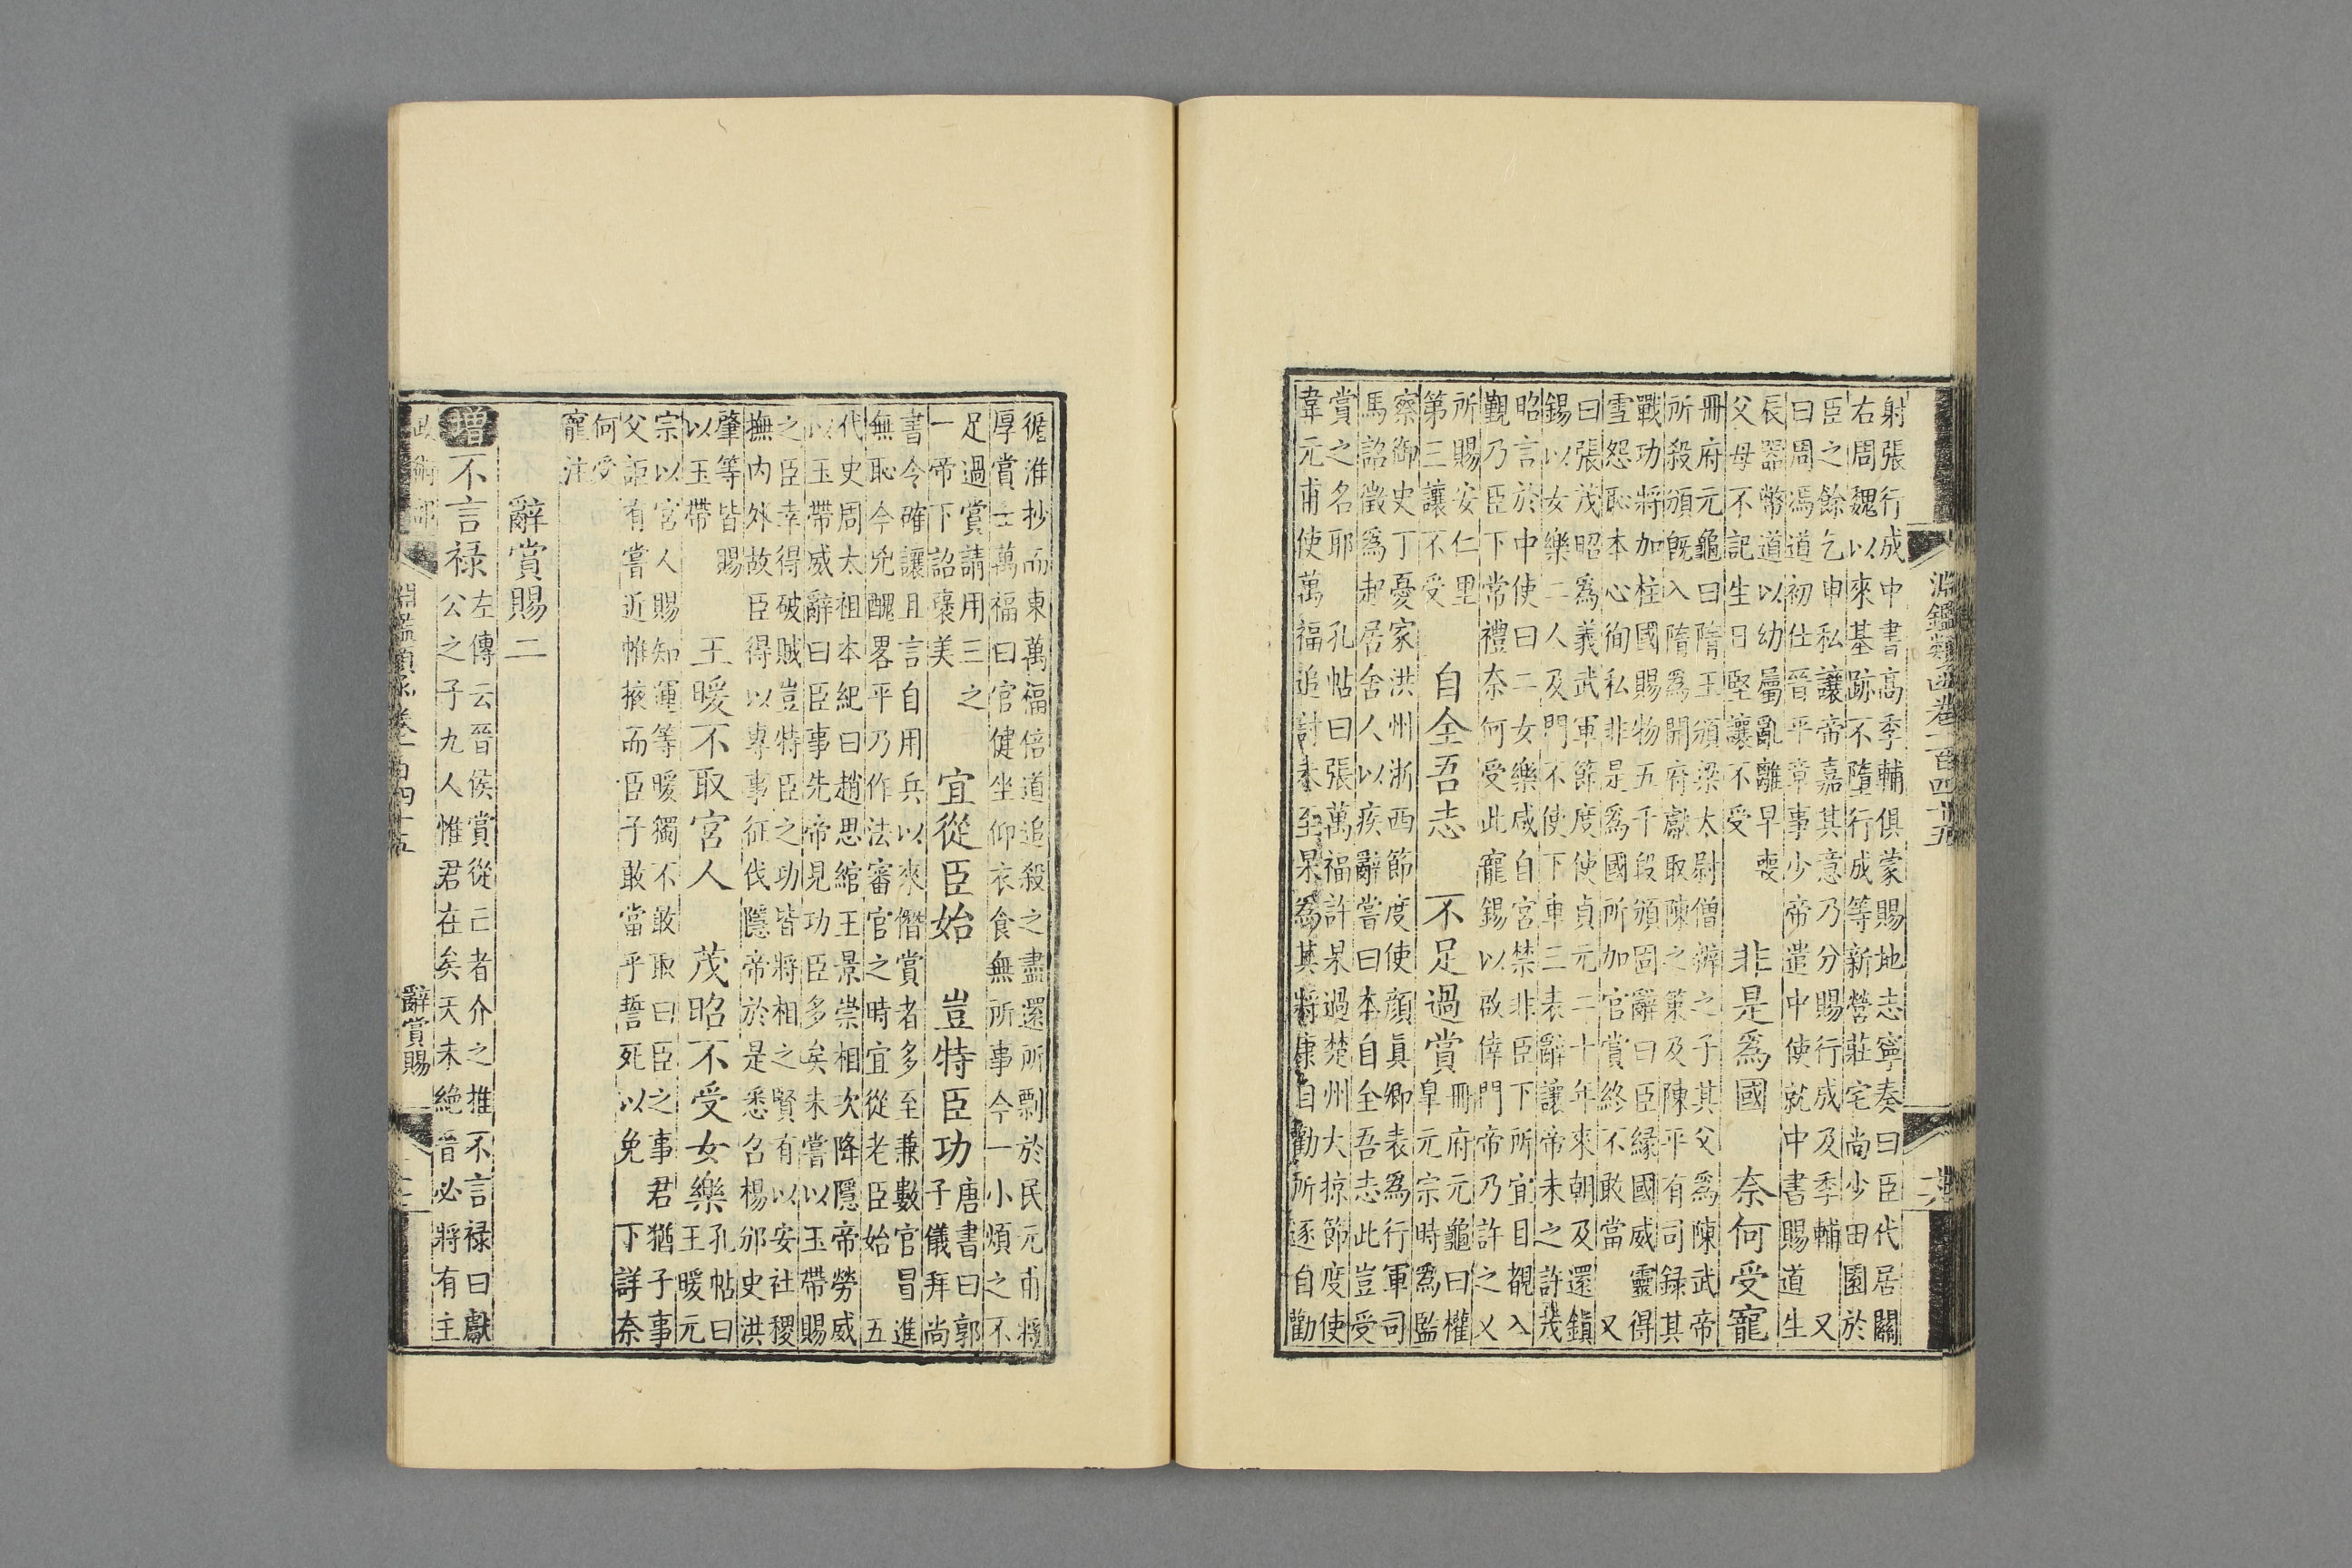 淵鑑類函卷一百四十五
射張行成中書高季輔俱蒙賜地志寧奏曰臣代居關
右周魏以來基跡不墮行成等新營莊宅尚少田園於
臣之餘乞申私讓帝嘉其意乃分賜行成及季輔 又
曰周馮道初仕晉平章事少帝遣中使就中書賜道生
辰器幣道以幼屬亂離早喪
父母不記生日堅讓不受
非是爲國 奈何受寵
冊府元龜曰隋王頒梁太尉僧辨之子其父爲陳武帝
所殺頒旣入隋爲開府獻取陳之策及陳平有司録其
戰功將加柱國賜物五千段頒固辭曰臣緣國威靈得
雪怨恥本心徇私非是爲國所加官賞終不敢當 又
曰張茂昭爲義武軍節度使貞元二十年來朝及還鎭
錫以女樂二人及門不使下車三表辭讓帝未之許茂
昭言於中使曰二女樂咸自宮禁非臣下所宜目覩入
覲乃臣下常禮奈何受此寵錫以啟倖門帝乃許之 又
所賜安仁里
第三讓不受
自全吾志 不足過賞
冊府元龜曰權
臯元宗時爲監
察御史丁憂家洪州浙西節度使顔眞卿表爲行軍司
馬詔徵爲起居舍人以疾辭嘗曰本自全吾志此豈受
賞之名耶 孔帖曰張萬福許杲過楚州大掠節度使
韋元甫使萬福追討未至杲爲其將康自勸所逐自勸
循淮抄而東萬福倍道追殺之盡還所剽於民元甫將
厚賞士萬福曰官健坐仰衣食無所事今一小煩之不
足過賞請用三之
一帝下詔襃美
宜從臣始 豈特臣功
唐書曰郭
子儀拜尚
書令確讓且言自用兵以來僭賞者多至兼數官冒進
無恥今兇醜畧平乃作法審官之時宜從老臣始 五
代史周太祖本紀曰趙思綰王景崇相次降隱帝勞威
以玉帶威辭曰臣事先帝見功臣多矣未嘗以玉帶賜
之臣幸得破賊豈特臣之功皆將相之賢有以安社稷
撫内外故臣得以專事征伐隱帝於是悉召楊邠史洪
肇等皆賜
以玉帶
王暖不取宮人 茂昭不受女樂
孔帖曰
王暖元
宗以宮人賜知運等暖獨不敢取曰臣之事君猶子事
父詎有嘗近帷掖而臣子敢當乎誓死以免 下詳奈
何受
寵注
辭賞賜二
增
不言禄
左傳云晉侯賞從亡者介之推不言禄曰獻
公之子九人惟君在矣天未絶晉必將有主
政術部
淵鑑類函卷一百四十五
辭賞賜